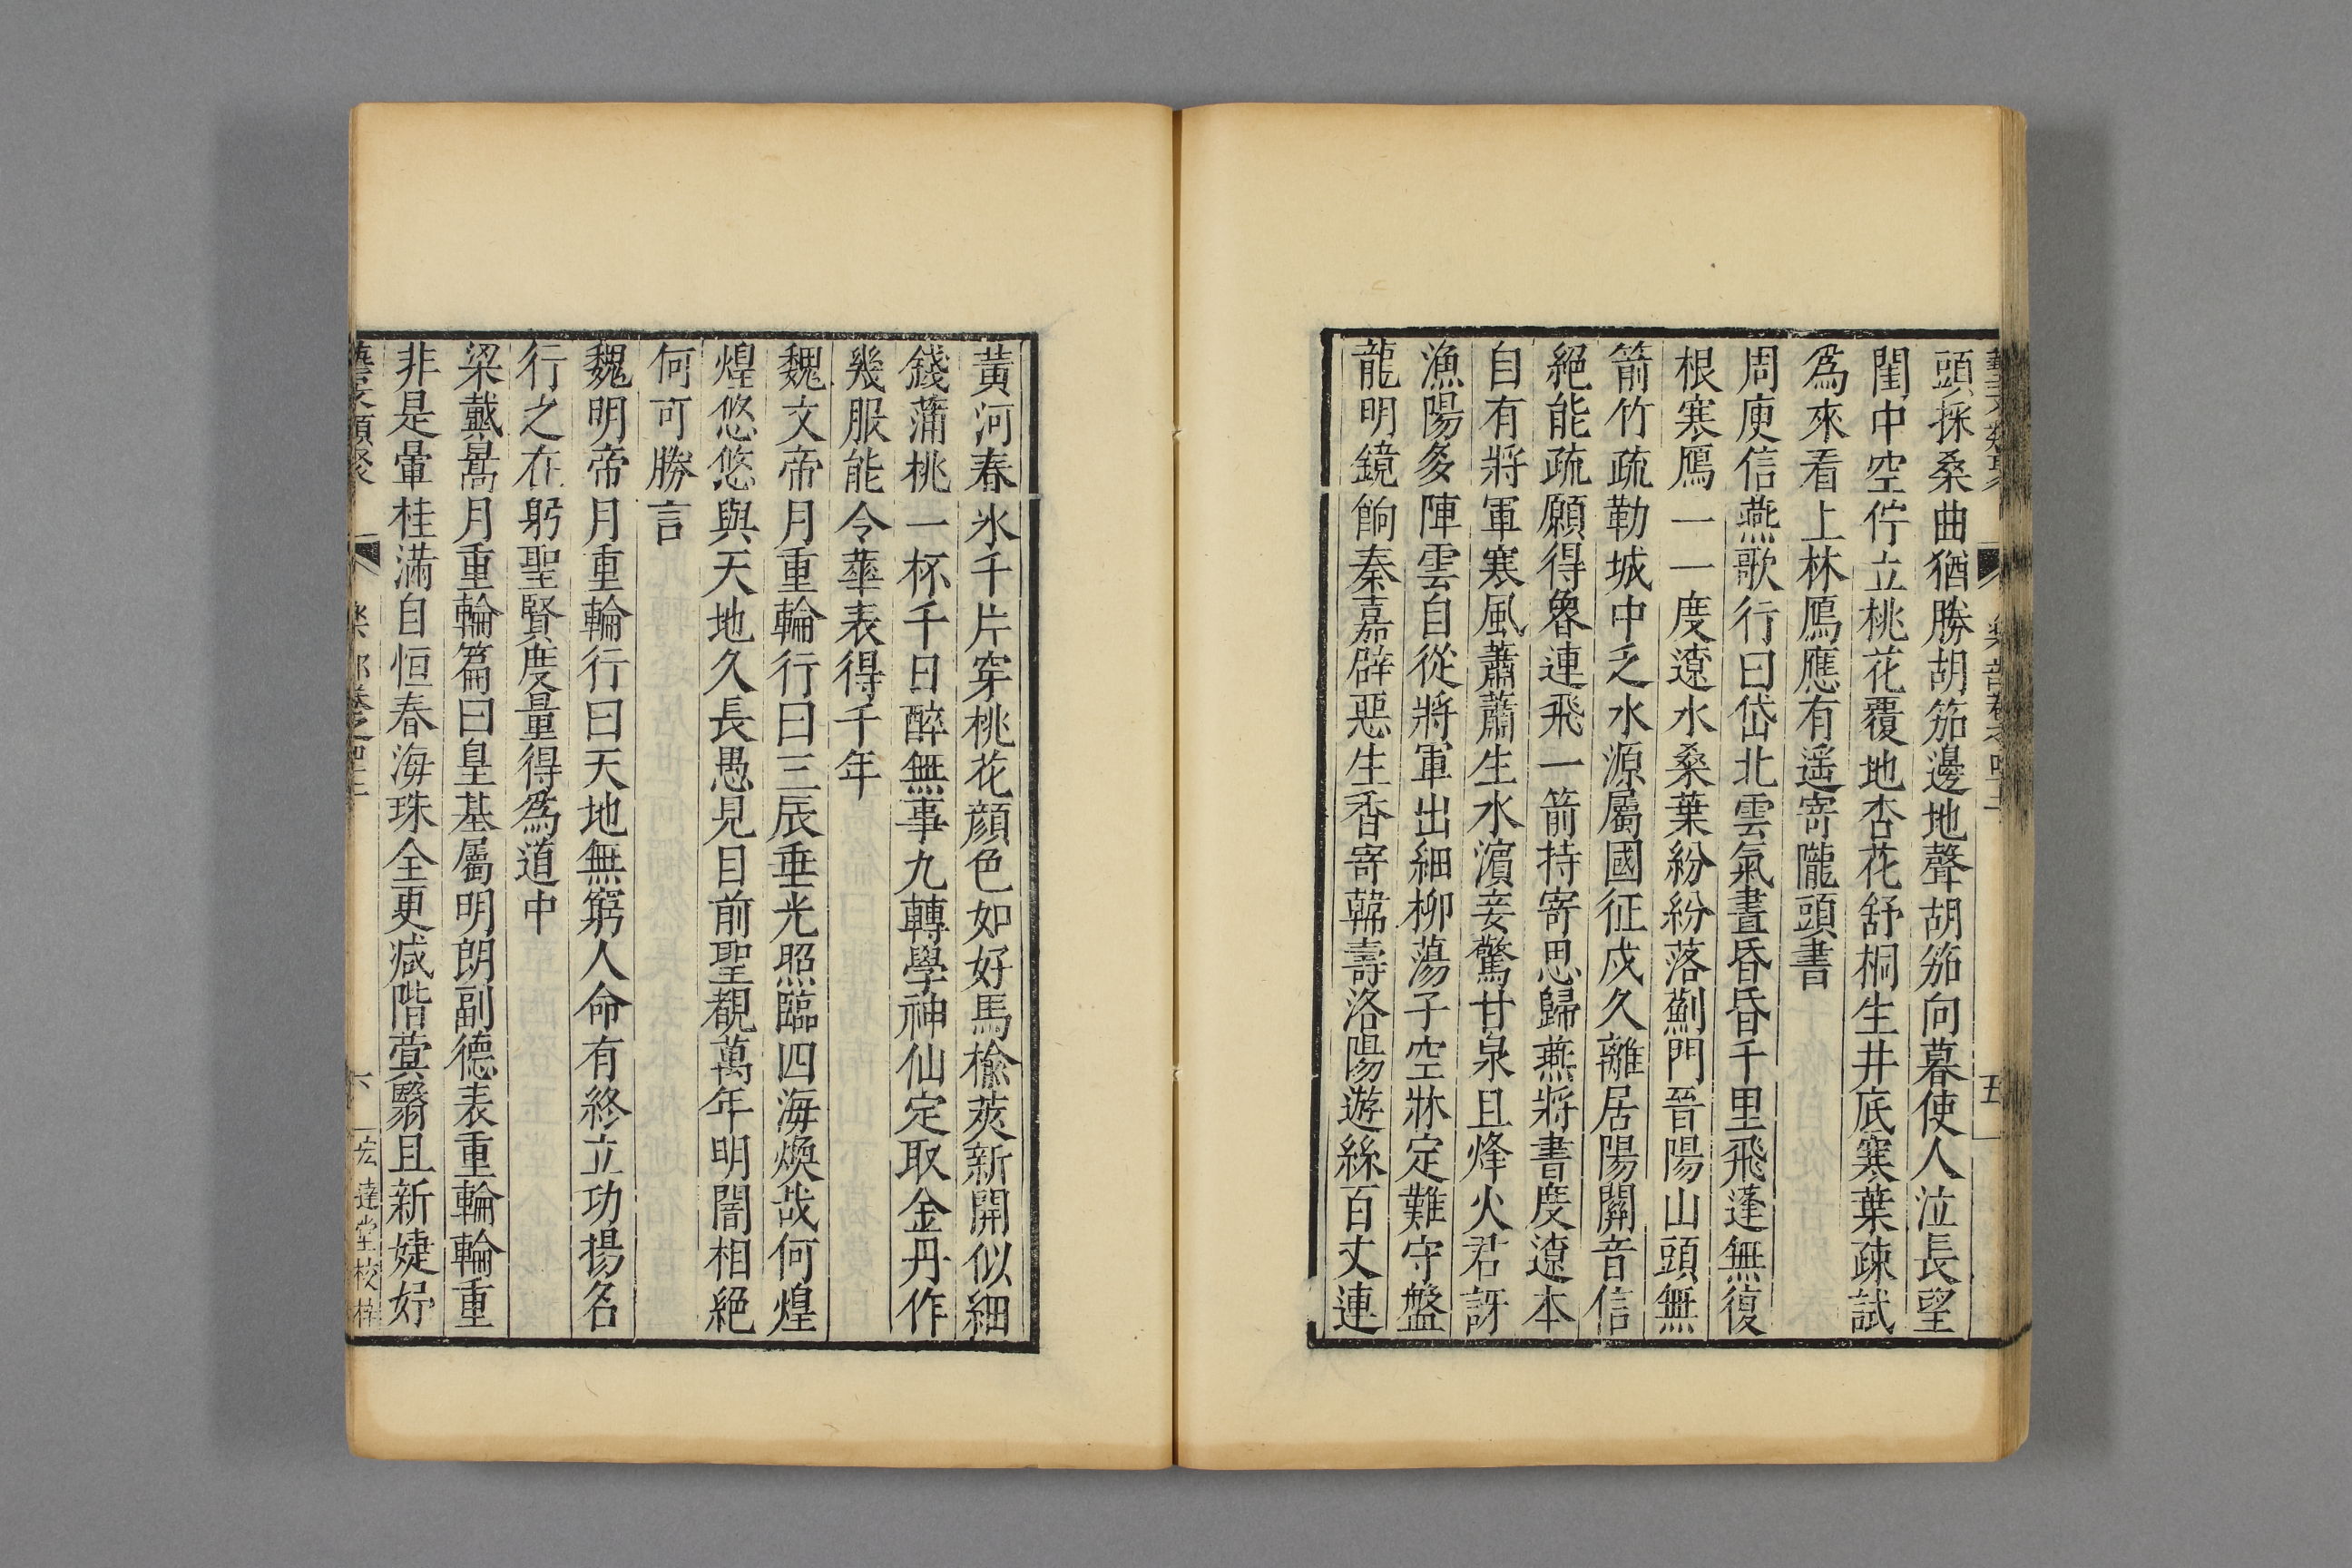 頭採桑曲猶勝胡笳邊地聲胡笳向暮使人泣長望
閨中空佇立桃花覆地杏花舒桐生井底寒葉疎試
爲來看上林鴈應有遥寄隴頭書
周庾信燕歌行曰岱北雲氣晝昏昏千里飛蓬無復
根寒鴈一一度遼水桑葉紛紛落薊門晉陽山頭無
箭竹疏勒城中乏水源屬國征戍久離居陽關音信
絕能疏願得魯連飛一箭持寄思歸燕將書度遼本
自有將軍寒風蕭蕭生水濵妾驚甘泉且烽火君訝
漁陽多陣雲自從將軍出細柳蕩子空牀定難守盤
龍明鏡餉秦嘉辟惡生香寄韓壽洛陽遊絲百丈連
黃河春氷千片穿桃花顔色如好馬榆莢新開似細
錢蒲桃一杯千日醉無事九轉學神仙定取金丹作
幾服能令華表得千年
魏文帝月重輪行曰三辰垂光照臨四海煥哉何煌
煌悠悠與天地久長愚見目前聖覩萬年明闇相絕
何可勝言
魏明帝月重輪行曰天地無窮人命有終立功揚名
行之在躬聖賢度量得爲道中
梁戴暠月重輪篇曰皇基屬明朗副德表重輪輪重
非是暈桂滿自恒春海珠全更減階蓂翳且新婕妤